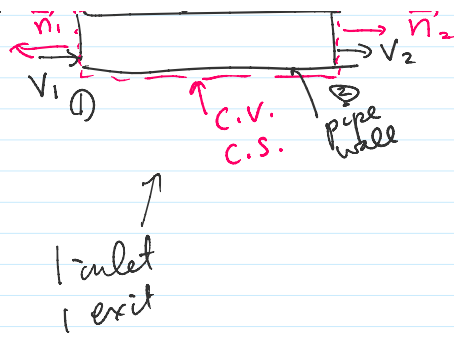 n̅₁ n̅₂
V₁ V₂
① ②
C.V.
C.S.
pipe
wall
1 inlet
1 exit